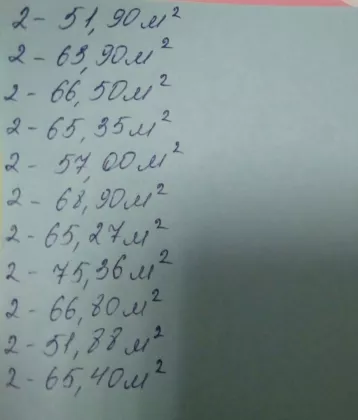 2 - 51,90 м²
2 - 63,90 м²
2 - 66,50 м²
2 - 65,35 м²
2 - 57,00 м²
2 - 68,90 м²
2 - 65,27 м²
2 - 75,36 м²
2 - 66,80 м²
2 - 51,88 м²
2 - 65,40 м²